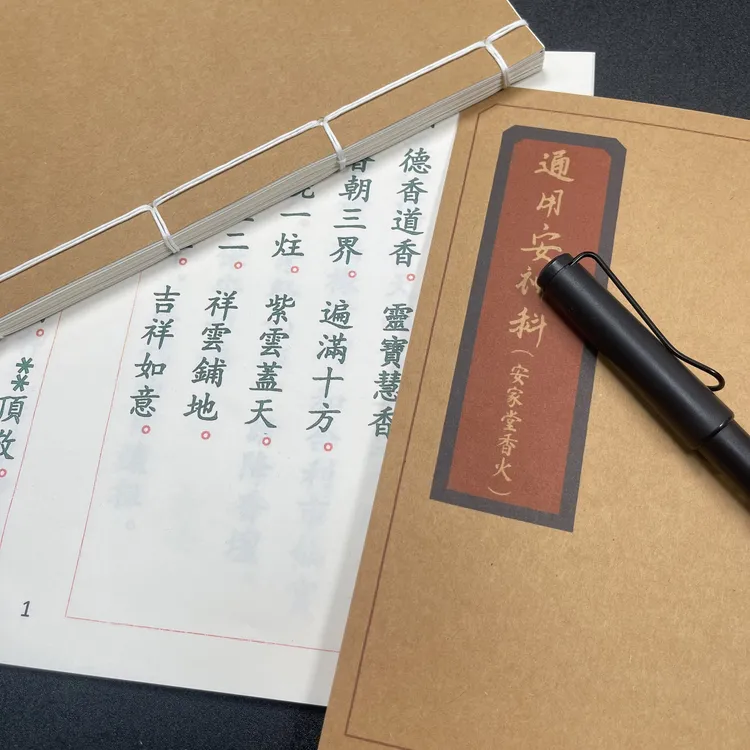 通用安神科（安家堂香火）
德香道香。靈寶慧香
香朝三界。遍滿十方。
一炷。紫雲蓋天。
二。祥雲鋪地。
吉祥如意。
**頂
1